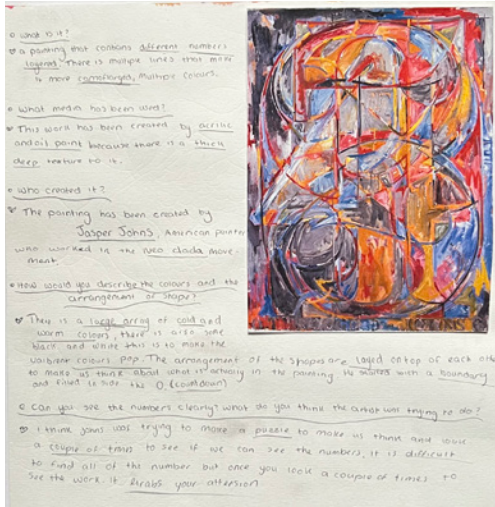 what is it?
a painting that contains different numbers
layered. There is multiple lines that make
it more camoflarged, multiple colours.
What media has been used?
This work has been created by acrilic
and oil paint because there is a thick
deep texture to it.
Who created it?
The painting has been created by
Jasper Johns, American painter
who worked in the neo dada move-
ment.
How would you describe the colours and the
arrangement of shape?
There is a large array of cold and
warm colours, there is also some
black and white this is to make the
vaibrent colours pop. The arrangement of the shapes are layed on top of each othe
to make us think about what is actually in the painting. He starts with a boundary
and filled in side the 0. (countdown)
Can you see the numbers clearly? what do you think the artist was trying to do?
I think Johns was trying to make a puzzle to make us think and look
a couple of times to see if we can see the numbers, it is difficult
to find all of the number but once you look a couple of times to
see the work. It grabs your attension.